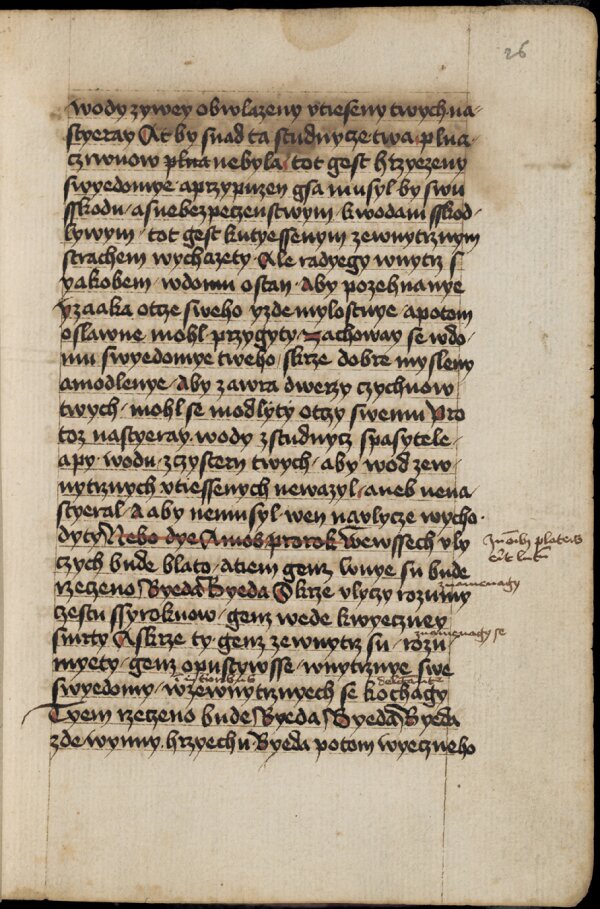 26
wody zywey obwlazeny vtieseny twych na-
styeray At by snad ta studnycze twa plna
czrwuow plna nebyla tot gest hrzyezeny
swyedomye aprzypuzen gsa musyl by swu
sskodu asnebezpeczenstwym kwodam sskod-
lywym tot gest kutyessenym zewnytrznym
strachem wychazety Ale radyegy wnytrz s
yakobem wdomu ostan Aby pozehnanye
yzaaka otcze sweho yzde mylostnye apotom
oslawne mohl przygyty Zachoway se wdo-
mu swyedomye tweho skrze dobre mysleny
amodlenye Aby zawra dwerzy czychuow
twych mohl se modlyty otczy swemu Pro
toz nastyeray wody zstudnycz spasytele
apy wodu zczystern twych aby wod zew-
nytrznych vtiessenych newazyl aneb nena-
styeral A aby nemusyl wen navlycze wycho-
dyty Nebo dye Amos prorok Wewssech vly
czych bude blato atiem genz wnye su bude
rzeczeno Byeda Byeda Skrze vlyczy rozumy
znamenagy
czestu ssyrokuow genz wede kwyeczney
smrty Askrze ty genz zewnytrz su rozu-
znamenagy se
myety genz opustywsse wnytrznye swe
swyedomy wzewnytrznyech se kochagy
delectante
Tyem rzeczeno bude Byeda Byeda Byeda
zde wynny hrzyechu Byeda potom wyeczneho